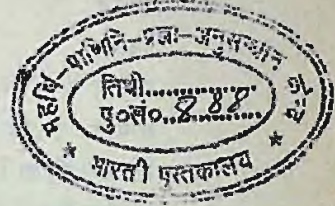 महर्षि-पाणिनि-प्रज्ञा-अनुसन्धान
तिथी..............
पु०सं०..288
* भारती पुस्तकालय *